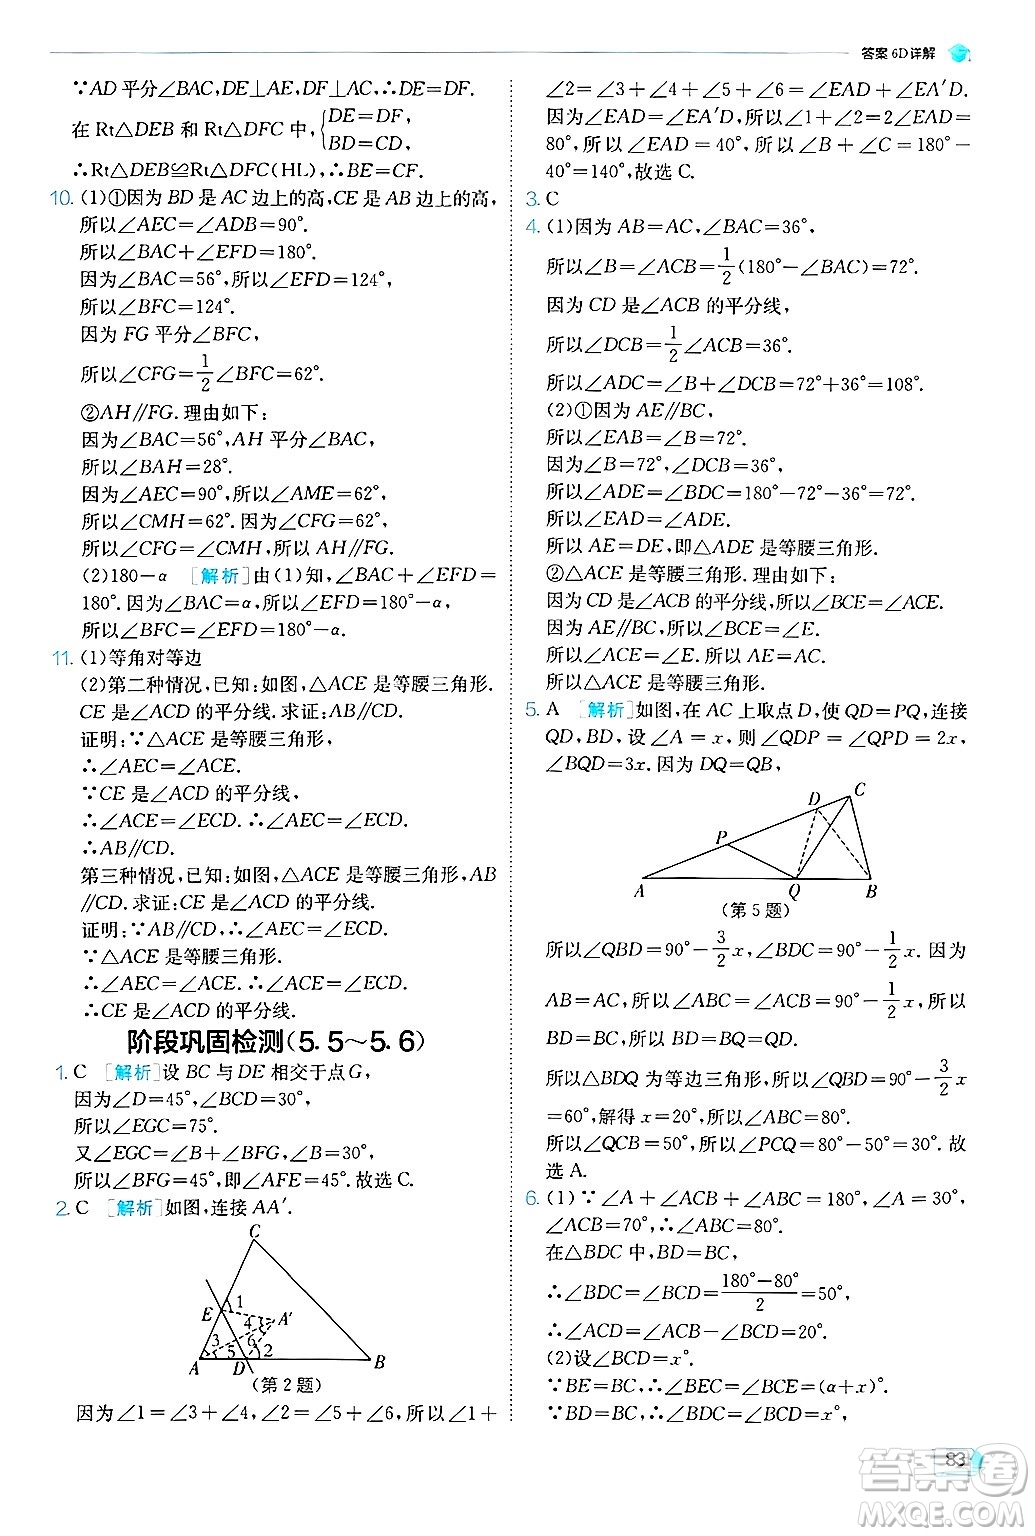 答案 6D详解
∵AD平分∠BAC,DE⊥AE,DF⊥AC,∴DE=DF.
在 Rt△DEB 和 Rt△DFC 中,{DE=DF, BD=CD.
∴Rt△DEB≌Rt△DFC(HL),∴BE=CF.
10. (1)①因为 BD 是 AC 边上的高,CE 是 AB 边上的高,
所以∠AEC=∠ADB=90°.
所以∠BAC+∠EFD=180°.
因为∠BAC=56°,所以∠EFD=124°.
所以∠BFC=124°.
因为 FG 平分∠BFC,
所以∠CFG=1/2∠BFC=62°.
②AH∥FG. 理由如下:
因为∠BAC=56°,AH 平分∠BAC,
所以∠BAH=28°.
因为∠AEC=90°,所以∠AME=62°.
所以∠CMH=62°. 因为∠CFG=62°,
所以∠CFG=∠CMH,所以 AH∥FG.
(2)180-α [解析]由(1)知,∠BAC+∠EFD=
180°. 因为∠BAC=α,所以∠EFD=180°-α,
所以∠BFC=∠EFD=180°-α.
11. (1)等角对等边
(2)第二种情况,已知:如图,△ACE 是等腰三角形.
CE 是∠ACD 的平分线. 求证:AB∥CD.
证明:∵△ACE 是等腰三角形,
∴∠AEC=∠ACE.
∵CE 是∠ACD 的平分线,
∴∠ACE=∠ECD. ∴∠AEC=∠ECD.
∴AB∥CD.
第三种情况,已知:如图,△ACE 是等腰三角形,AB
∥CD. 求证:CE 是∠ACD 的平分线.
证明:∵AB∥CD,∴∠AEC=∠ECD.
∵△ACE 是等腰三角形,
∴∠AEC=∠ACE. ∴∠ACE=∠ECD.
∴CE 是∠ACD 的平分线.
阶段巩固检测(5.5~5.6)
1. C [解析]设 BC 与 DE 相交于点 G,
因为∠D=45°,∠BCD=30°,
所以∠EGC=75°.
又∠EGC=∠B+∠BFG,∠B=30°,
所以∠BFG=45°,即∠AFE=45°. 故选 C.
2. C [解析]如图,连接 AA′.
C
E 1
4 A′
3 6
A 5 D 2 B
(第 2 题)
因为∠1=∠3+∠4,∠2=∠5+∠6,所以∠1+
∠2=∠3+∠4+∠5+∠6=∠EAD+∠EA′D.
因为∠EAD=∠EA′D,所以∠1+∠2=2∠EAD=
80°,所以∠EAD=40°,所以∠B+∠C=180°-
40°=140°,故选 C.
3. C
4. (1)因为 AB=AC,∠BAC=36°,
所以∠B=∠ACB=1/2(180°-∠BAC)=72°.
因为 CD 是∠ACB 的平分线,
所以∠DCB=1/2∠ACB=36°.
所以∠ADC=∠B+∠DCB=72°+36°=108°.
(2)①因为 AE∥BC,
所以∠EAB=∠B=72°.
因为∠B=72°,∠DCB=36°,
所以∠ADE=∠BDC=180°-72°-36°=72°.
所以∠EAD=∠ADE.
所以 AE=DE,即△ADE 是等腰三角形.
②△ACE 是等腰三角形. 理由如下:
因为 CD 是∠ACB 的平分线,所以∠BCE=∠ACE.
因为 AE∥BC,所以∠BCE=∠E.
所以∠ACE=∠E. 所以 AE=AC.
所以△ACE 是等腰三角形.
5. A [解析]如图,在 AC 上取点 D,使 QD=PQ,连接
QD,BD,设∠A=x,则∠QDP=∠QPD=2x,
∠BQD=3x. 因为 DQ=QB,
D C
P
A Q B
(第 5 题)
所以∠QBD=90°-3/2x,∠BDC=90°-1/2x. 因为
AB=AC,所以∠ABC=∠ACB=90°-1/2x,所以
BD=BC,所以 BD=BQ=QD.
所以△BDQ 为等边三角形,所以∠QBD=90°-3/2x
=60°,解得 x=20°,所以∠ABC=80°.
所以∠QCB=50°,所以∠PCQ=80°-50°=30°. 故
选 A.
6. (1)∵∠A+∠ACB+∠ABC=180°,∠A=30°,
∠ACB=70°,∴∠ABC=80°.
在△BDC 中,BD=BC,
∴∠BDC=∠BCD=(180°-80°)/2=50°,
∴∠ACD=∠ACB-∠BCD=20°.
(2)设∠BCD=x°.
∵BE=BC,∴∠BEC=∠BCE=(α+x)°.
∵BD=BC,∴∠BDC=∠BCD=x°,
83
答案圈
MXQE.COM